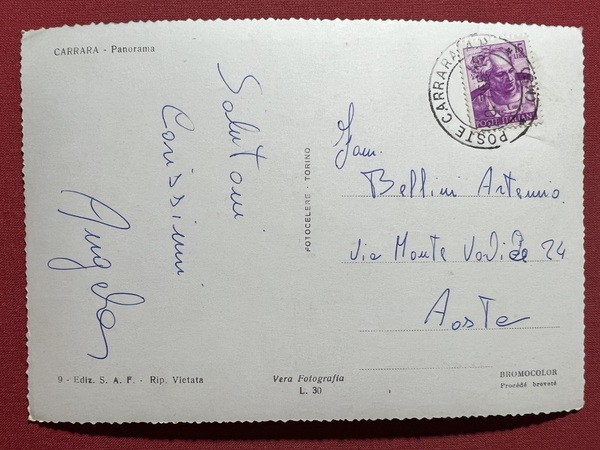 CARRARA - Panorama
Salutoni
Carissimi
Angelo
FOTOCELERE - TORINO
Fam.
Bellini Artemio
Via Monte 24
Aosta
POSTE CARRARA
15
LIRE
POSTE ITALIANE
9 - Ediz. S. A. F. - Rip. Vietata
Vera Fotografia
L. 30
BROMOCOLOR
Procédé breveté